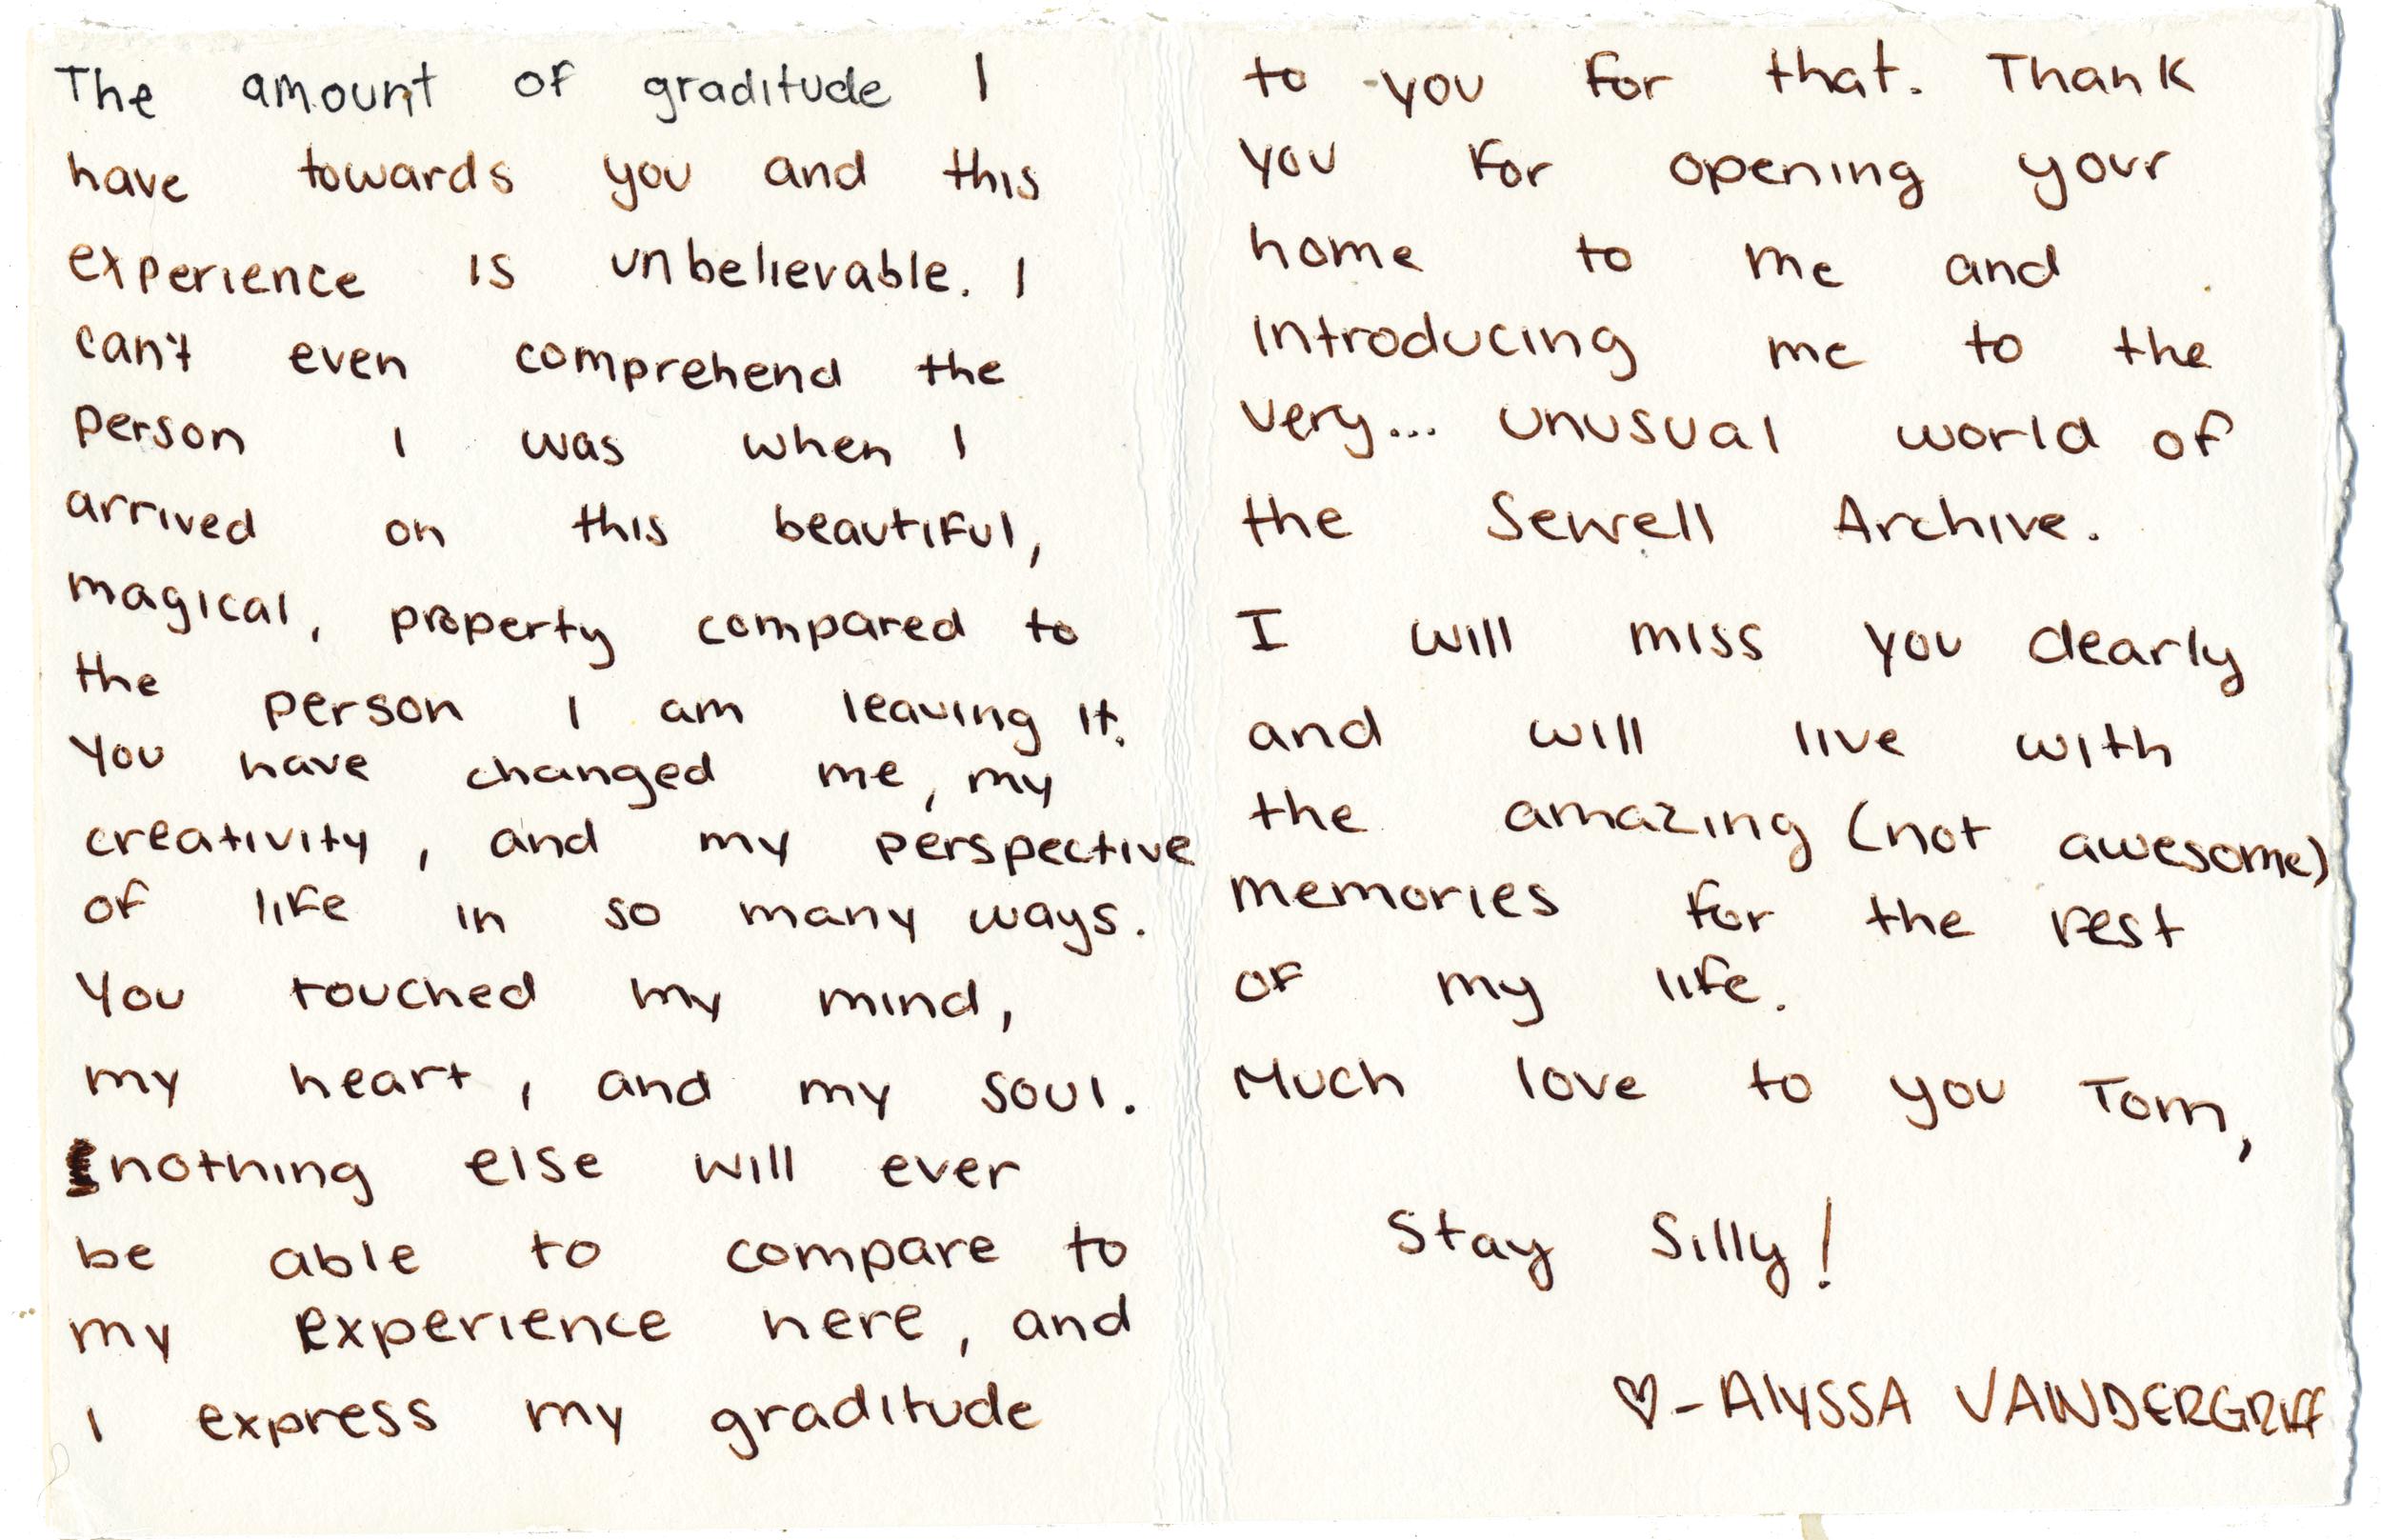 The amount of graditude I
have towards you and this
experience is unbelievable. I
can't even comprehend the
person I was when I
arrived on this beautiful,
magical, property compared to
the person I am leaving it.
You have changed me, my
creativity, and my perspective
of life in so many ways.
You touched my mind,
my heart, and my soul.
nothing else will ever
be able to compare to
my experience here, and
I express my graditude
to you for that. Thank
you for opening your
home to me and
introducing me to the
very... unusual world of
the Sewell Archive.
I will miss you dearly
and will live with
the amazing (not awesome)
memories for the rest
of my life.
Much love to you Tom,
Stay Silly!
♡-Alyssa Vandergriff